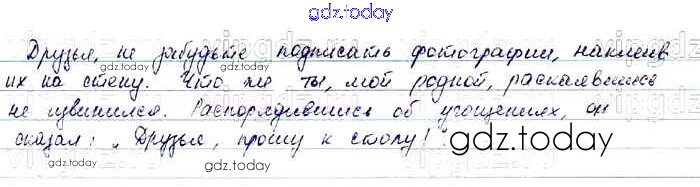 gdz.today
Друзья, не забудьте подписать фотографии, наклеив
их на стену. Что же ты, мой родной, раскаявшись
не извинился. Распорядившись об угощениях, он
сказал: „Друзья, прошу к столу!"
gdz.today
gdz.today